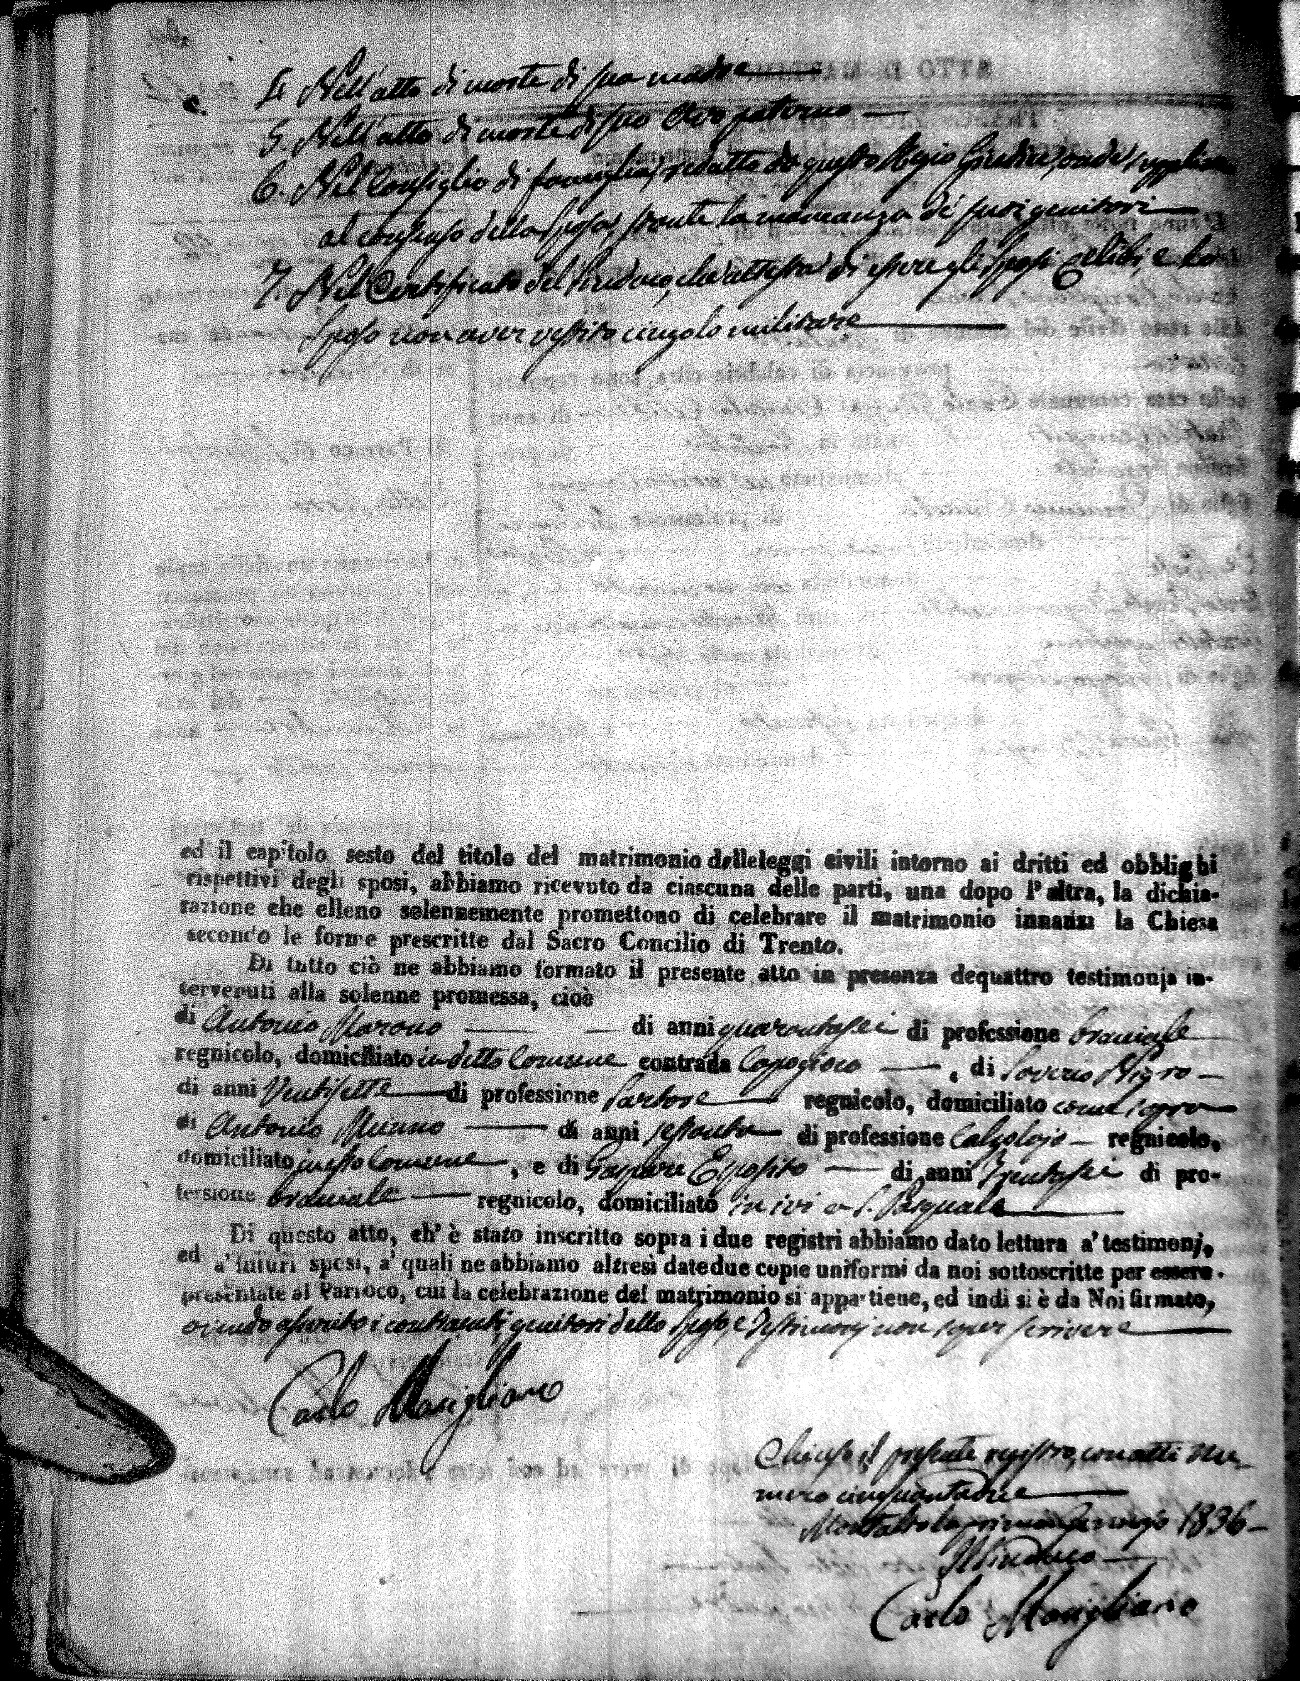 4. Nell'atto di morte di sua madre
5. Nell'atto di morte di suo Avo paterno
6. Nel Consiglio di famiglia, redatto da questo Regio Giudice, onde supplire
al consenso della Sposa, stante la mancanza di suoi genitori
7. Nel Certificato del Sindaco, che attesta di essere gli Sposi celibi, e lo
Sposo non aver vestito cingolo militare
ed il capitolo sesto del titolo del matrimonio delleleggi civili intorno ai dritti ed obblighi
rispettivi degli sposi, abbiamo ricevuto da ciascuna delle parti, una dopo l'altra, la dichia-
razione che elleno solennemente promettono di celebrare il matrimonio innanzi la Chiesa
secondo le forme prescritte dal Sacro Concilio di Trento.
Di tutto ciò ne abbiamo formato il presente atto in presenza dequattro testimonj in-
tervenuti alla solenne promessa, cioè
di Antonio Marono di anni quarantasei di professione bracciale
regnicolo, domiciliato in detto Comune contrada Capogioco , di Saverio Nigro
di anni Ventisette di professione Sartore regnicolo, domiciliato come sopra
di Antonio Munno di anni sessanta di professione Calzolajo regnicolo,
domiciliato in esso Comune , e di Gaspare Esposito di anni Trentasei di pro-
fessione bracciale regnicolo, domiciliato in ivi a S. Pasquale
Di questo atto, ch' è stato inscritto sopra i due registri abbiamo dato lettura a' testimonj,
ed a' futuri sposi, a' quali ne abbiamo altresì datedue copie uniformi da noi sottoscritte per essere
presentate al Parroco, cui la celebrazione del matrimonio si appartiene, ed indi si è da Noi firmato,
avendo asserito i contraenti, genitori dello Sposo e Testimonj non saper scrivere
Carlo Marigliano
Chiuso il presente registro, con atti Nu-
mero cinquantadue
Montalto la primo Gennajo 1836
Il Sindaco
Carlo Marigliano